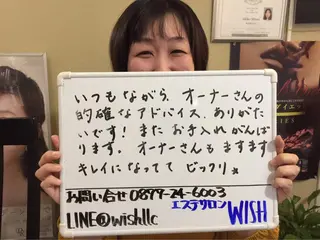 いつもながら、オーナーさんの
的確なアドバイス、ありがた
いです！またお手入れがんば
ります。オーナーさんもますます
キレイになってて ビックリ★
お問い合せ 0877-24-6003
エステサロン WISH
LINE@wishllc